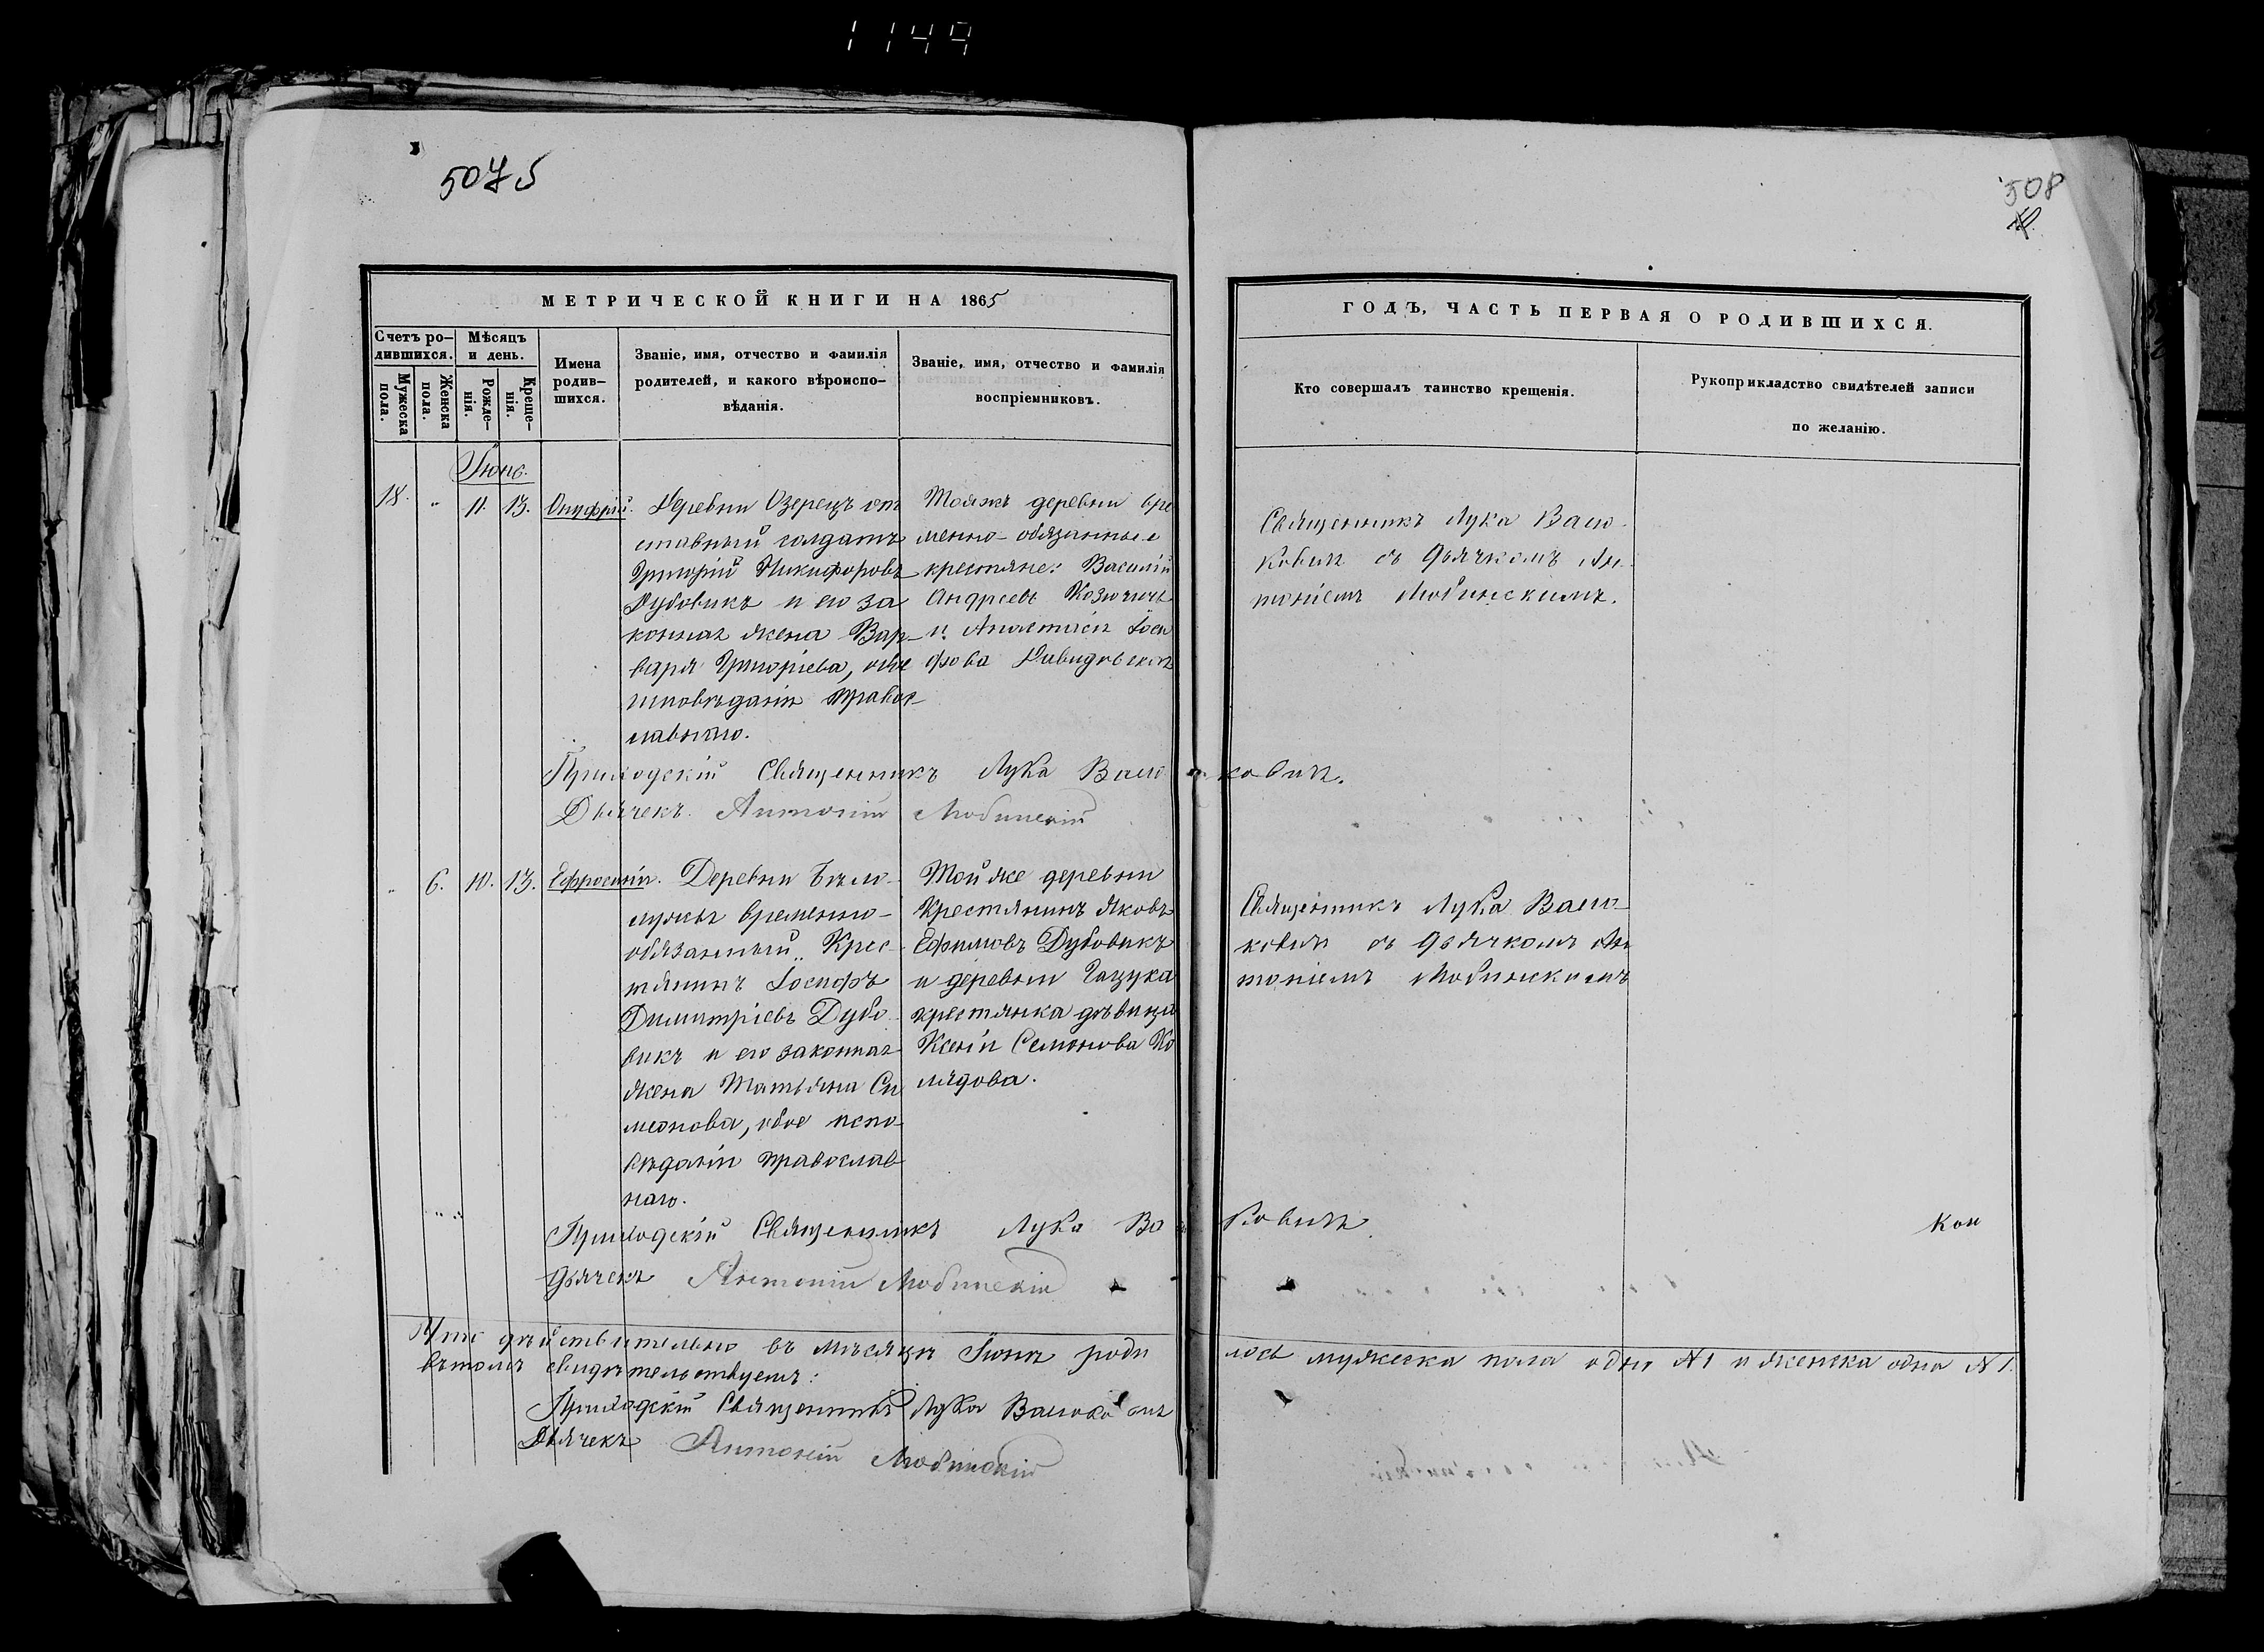 1149
5075
508
МЕТРИЧЕСКОЙ КНИГИ НА 1865
ГОДЪ, ЧАСТЬ ПЕРВАЯ О РОДИВШИХСЯ.
Счетъ ро-
дившихся.
Мужеска
пола.
Женска
пола.
Мѣсяцъ
и день.
Рожде-
нія.
Креще-
нія.
Имена
родив-
шихся.
Званіе, имя, отчество и фамилія
родителей, и какого вѣроиспо-
вѣданія.
Званіе, имя, отчество и фамилія
воспріемниковъ.
Кто совершалъ таинство крещенія.
Рукоприкладство свидѣтелей записи
по желанію.
Іюнь.
18. " 11. 13. Онуфрій.
Деревни Озерецъ от
ставный солдатъ
Григорій Никифоровъ
Дубовикъ и его за
конная жена Вар-
вара Григоріева, обое
исповѣданія правос-
лавнаго.
Тояжъ деревни вре
менно-обязанные
крестяне: Василій
Андреевъ Козючичъ
и Анастасія Іоси
фова Давидовская
Священникъ Лука Васю-
ковичъ съ Дьячкомъ Ан-
тоніемъ Любинскимъ.
Приходскій Священникъ Лука Васю ковичъ.
Дьячекъ Антоній Любинскій
" 6. 10. 13. Ефросинія.
Деревни Бѣло-
лужья временно-
обязанный Крес-
тянинъ Іосифъ
Димитріевъ Дубо-
викъ и его законная
жена Татьяна Си
меонова, обое испо
вѣданія православ
наго.
Той же деревни
Крестянинъ Яковъ
Ефимовъ Дубовикъ
и деревни Гацука
крестянка дѣвица
Ксенія Семенова Ко
лядова.
Священникъ Лука Васю-
ковичъ съ Дьячкомъ Ан
тоніемъ Любинскимъ
Приходскій Священникъ Лука Ва ковичъ
Дьячекъ Антоній Любинскій
Что дѣйствительно въ мѣсяцѣ Іюнѣ роди лось мужеска пола одно №1 и женска одна №1.
въ томъ свидѣтельствуемъ:
Приходскій Священникъ Лука Васюковичъ
Дьячекъ Антоній Любинскій